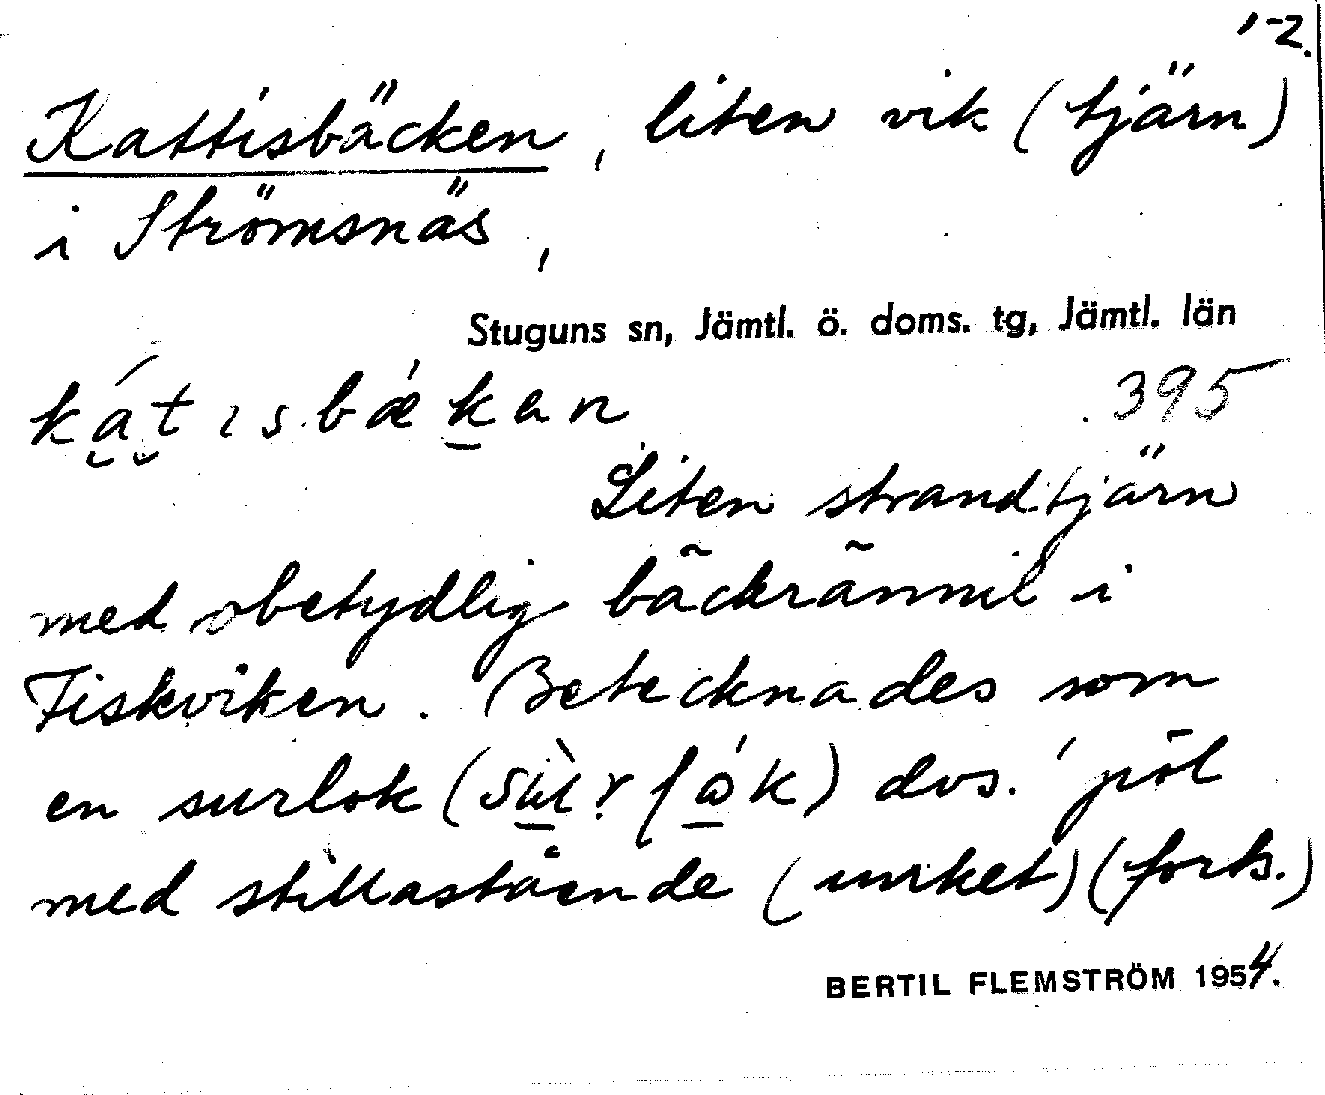 1-2.
Kattisbäcken, liten vik (tjärn)
i Strömsnäs,
Stuguns sn, Jämtl. ö. doms. tg, Jämtl. län
395
Liten strandtjärn
med obetydlig bäckrännil i
Fiskviken. Betecknades som
en surlok dvs. 'pöl
med stillastående (murket) (forts.)
BERTIL FLEMSTRÖM 1954.